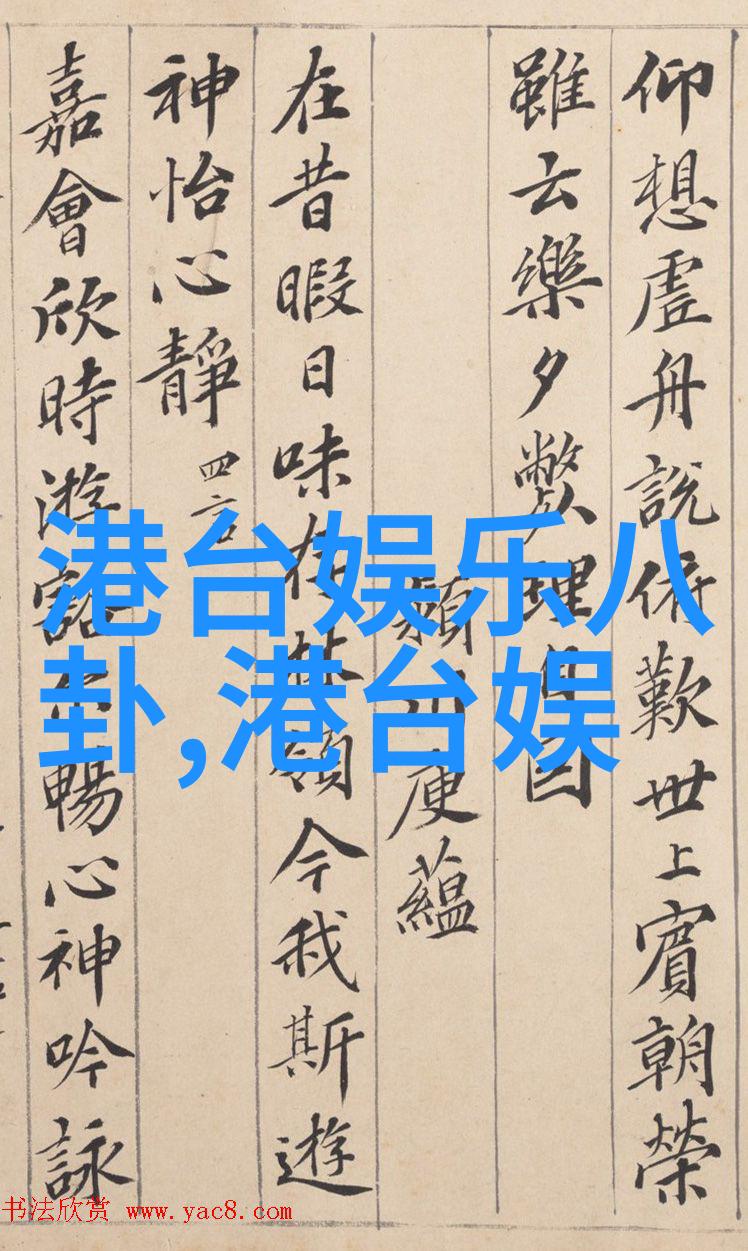 仰想虛舟說俯歎世上賓朝榮
雖云樂夕弊理自因
潁川庾蘊
在昔暇日味存林嶺今我斯遊
神怡心靜 四言
嘉會欣時游豁尓暢心神吟詠
港台娱乐八
卦,港台娱
书法欣赏 www.yac8.com